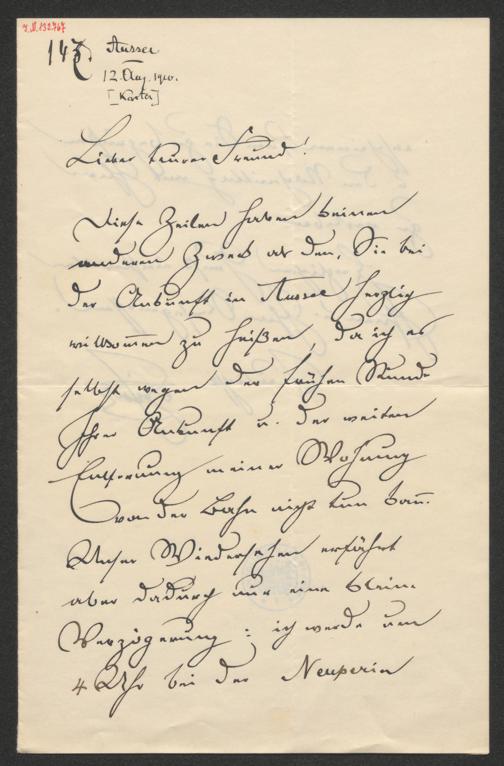 I.N. 132.767
143.
Aussee
12. Aug. 1910.
[Karte]
Lieber teurer Freund!
Diese Zeilen haben keinen
anderen Zweck als den, Sie bei
der Ankunft in Aussee herzlig
willkommen zu heißen, da ich es
selbst wegen der frühen Stunde
Ihrer Ankunft u. der weiten
Entfernung meiner Wohnung
von der Bahn nicht tun kann.
Unser Wiedersehen erfährt
aber dadurch nur eine kleine
Verzögerung: ich werde um
4 Uhr bei der Neuperin